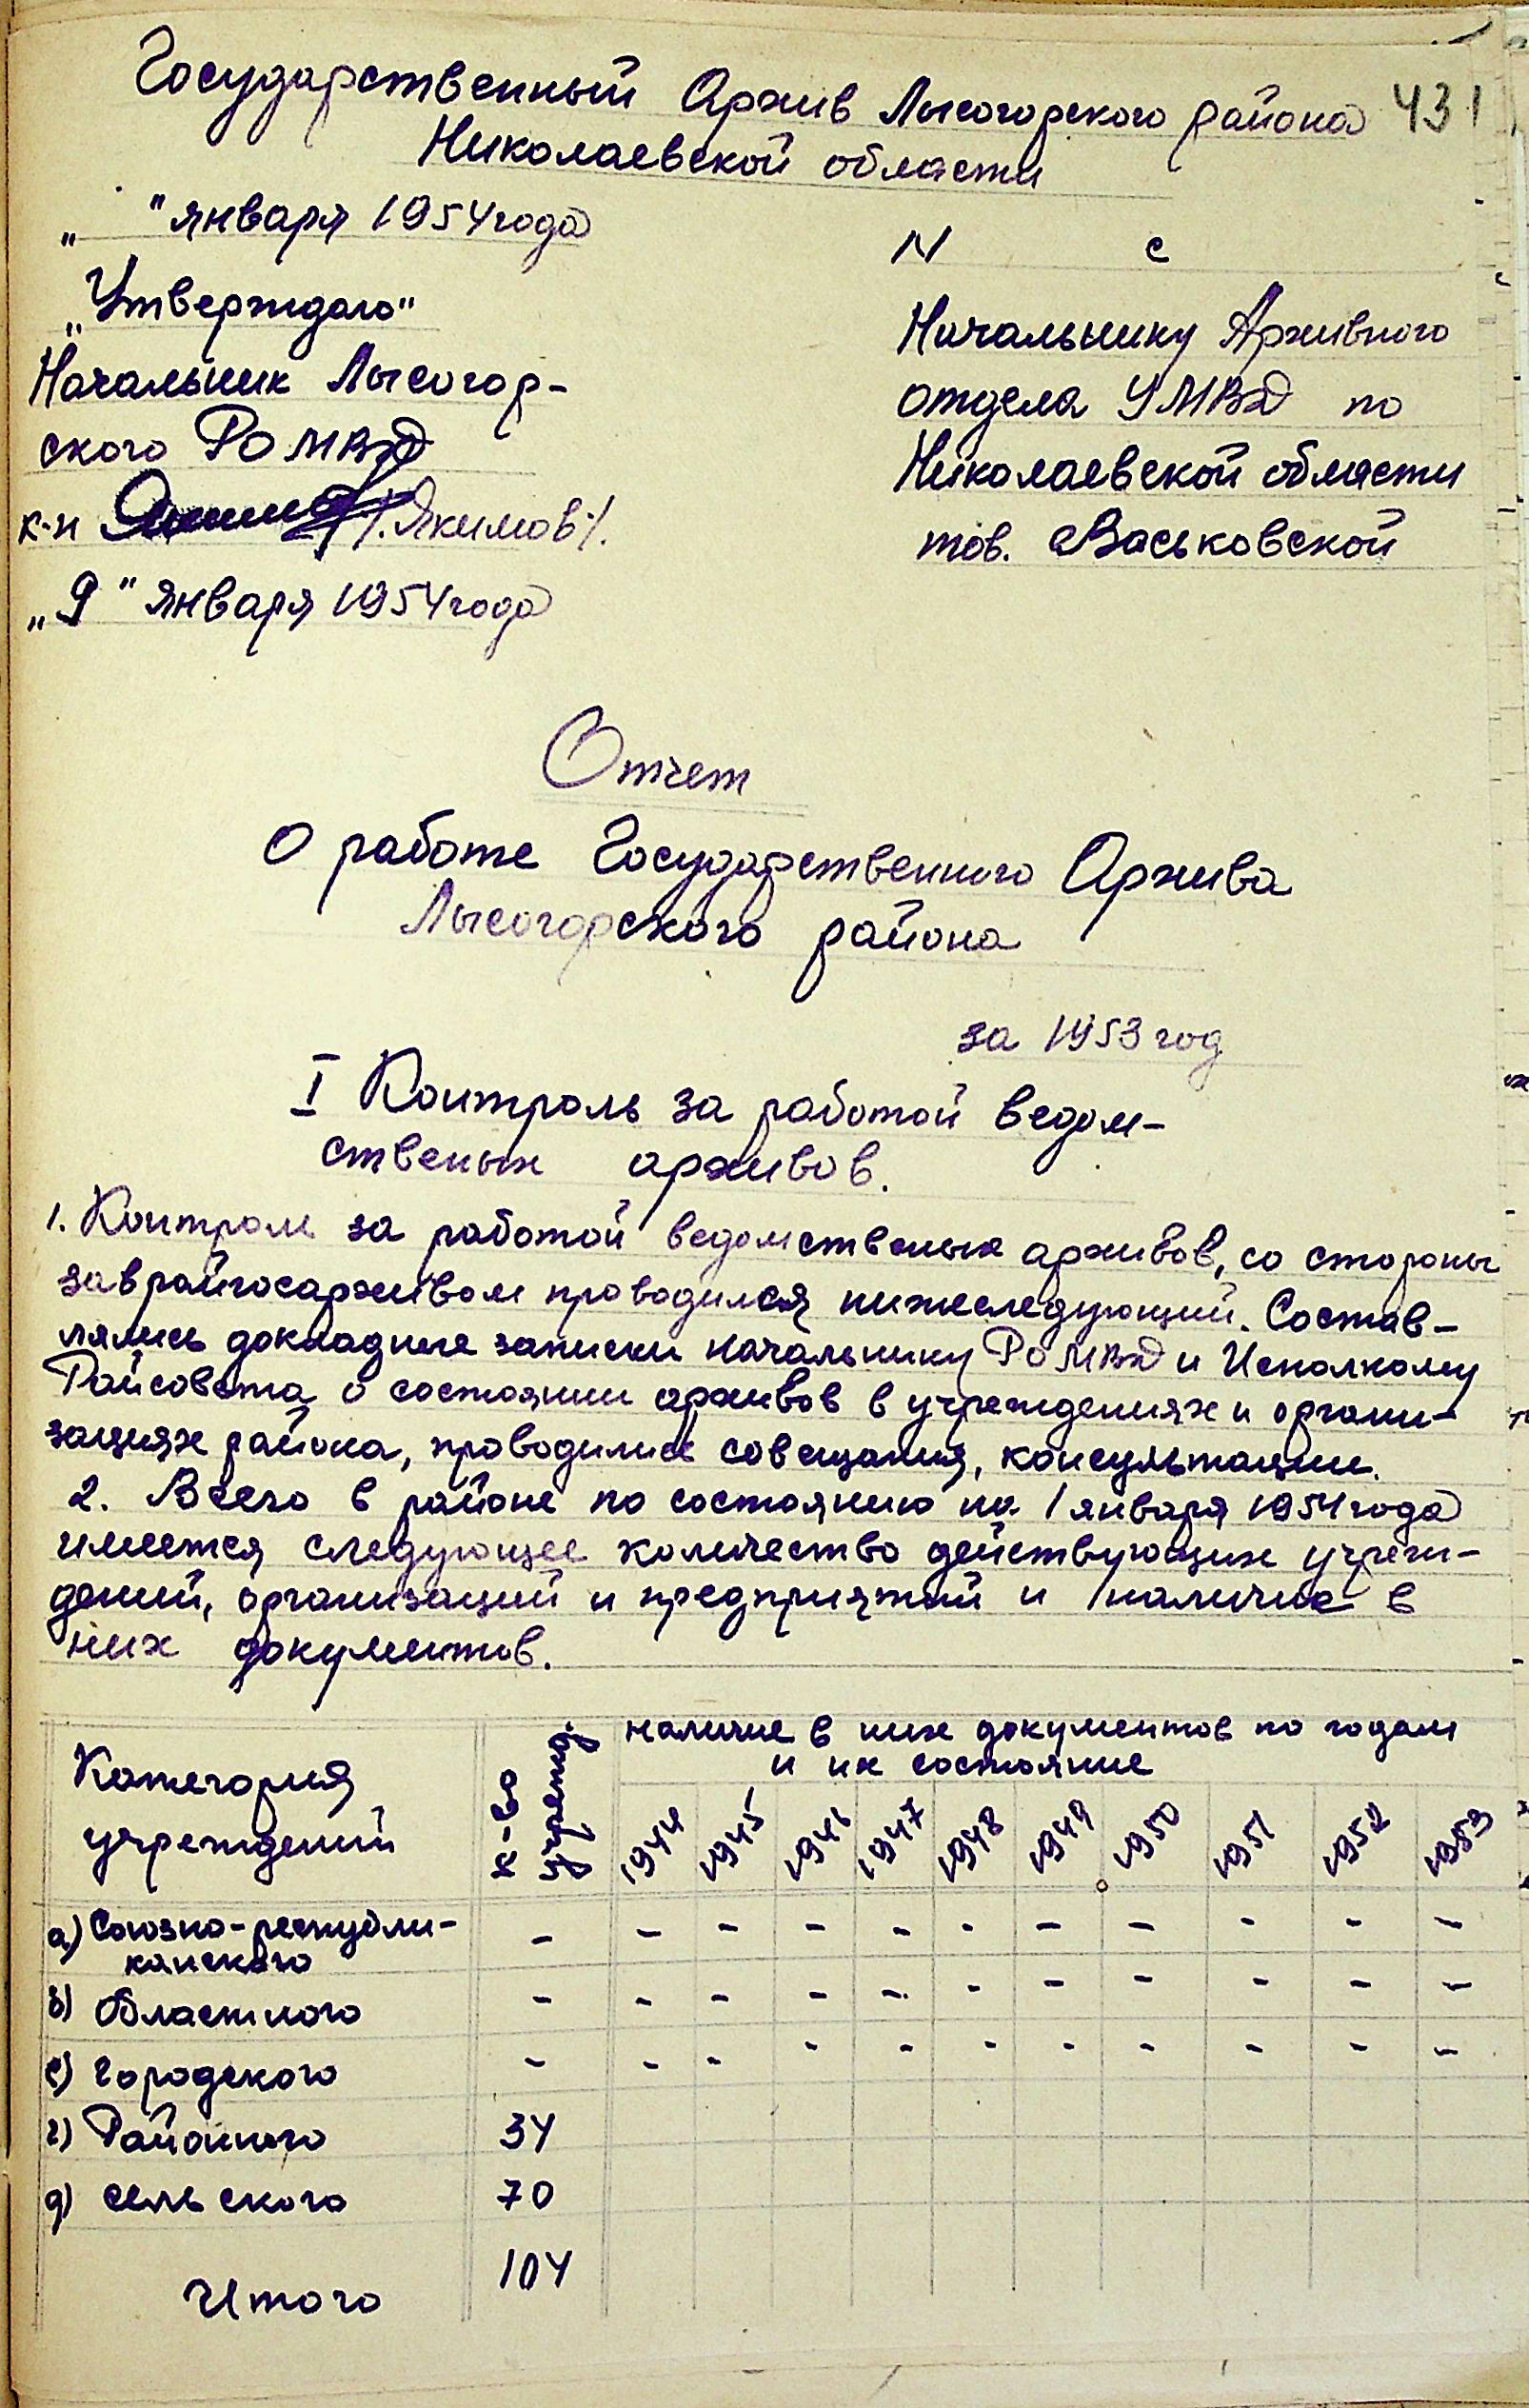 Государственный Архив Лысогорского района 431
Николаевской области
„ " января 1954 года
N с
„Утверждаю"
Начальник Лысогор-
ского РО МВД
к-н /.Якимов./.
„9" января 1954 года
Начальнику Архивного
отдела УМВД по
Николаевской области
тов. Васьковской
Отчет
О работе Государственного Архива
Лысогорского района
за 1953 год
I Контроль за работой ведом-
ственых архивов.
1. Контроль за работой ведомственых архивов, со стороны
заврайгосархивом проводился нижеследующий. Состав-
лялись докладные записки начальнику РО МВД и Исполкому
Райсовета о состоянии архивов в учреждениях и органи-
зациях района, проводились совещания, консультации.
2. Всего в районе по состоянию на 1 января 1954 года
имеется следующее количество действующих учреж-
дений, организаций и предприятий и наличие в
них документов.
Категория учреждений к-во учрежд. наличие в них документов по годам
и их состояние
1944 1945 1946 1947 1948 1949 1950 1951 1952 1953
а) Союзно-республи- - - - - - - - - - - -
канского
б) Областного - - - - - - - - - - -
в) Городского - - - - - - - - - - -
г) Районного 34
д) сельского 70
Итого 104